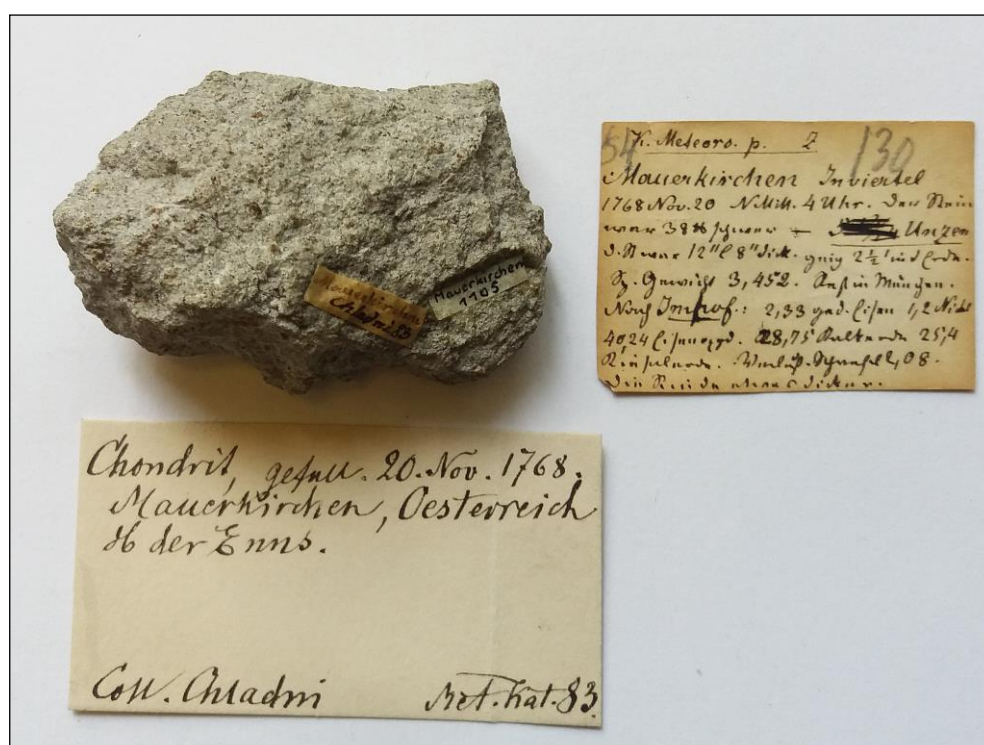 Mauerkirchen
Chladni 83
Mauerkirchen
1105
54 K. Meteoro. p. Z 130
Mauerkirchen Inviertel
1768 Nov. 20 N. Mitt. 4 Uhr. Der Stein
war 38 ℔ schwer Unzen
12" 8" dick. ging 2½' in d Erde.
Sp. Gewicht 3,452. Rest in München.
Nach Imhof.: 2,33 ged. Eisen 1,2 Nickel
40,24 Eisenoxyd. 28,75 Talkerde 25,4
Kieselerde. Verlust. Schwefel 2,08.
Die Rinde etwas dicker.
Chondrit, gefall. 20. Nov. 1768.
Mauerkirchen, Oesterreich
ob der Enns.
Coll. Chladni Met. Kat. 83.